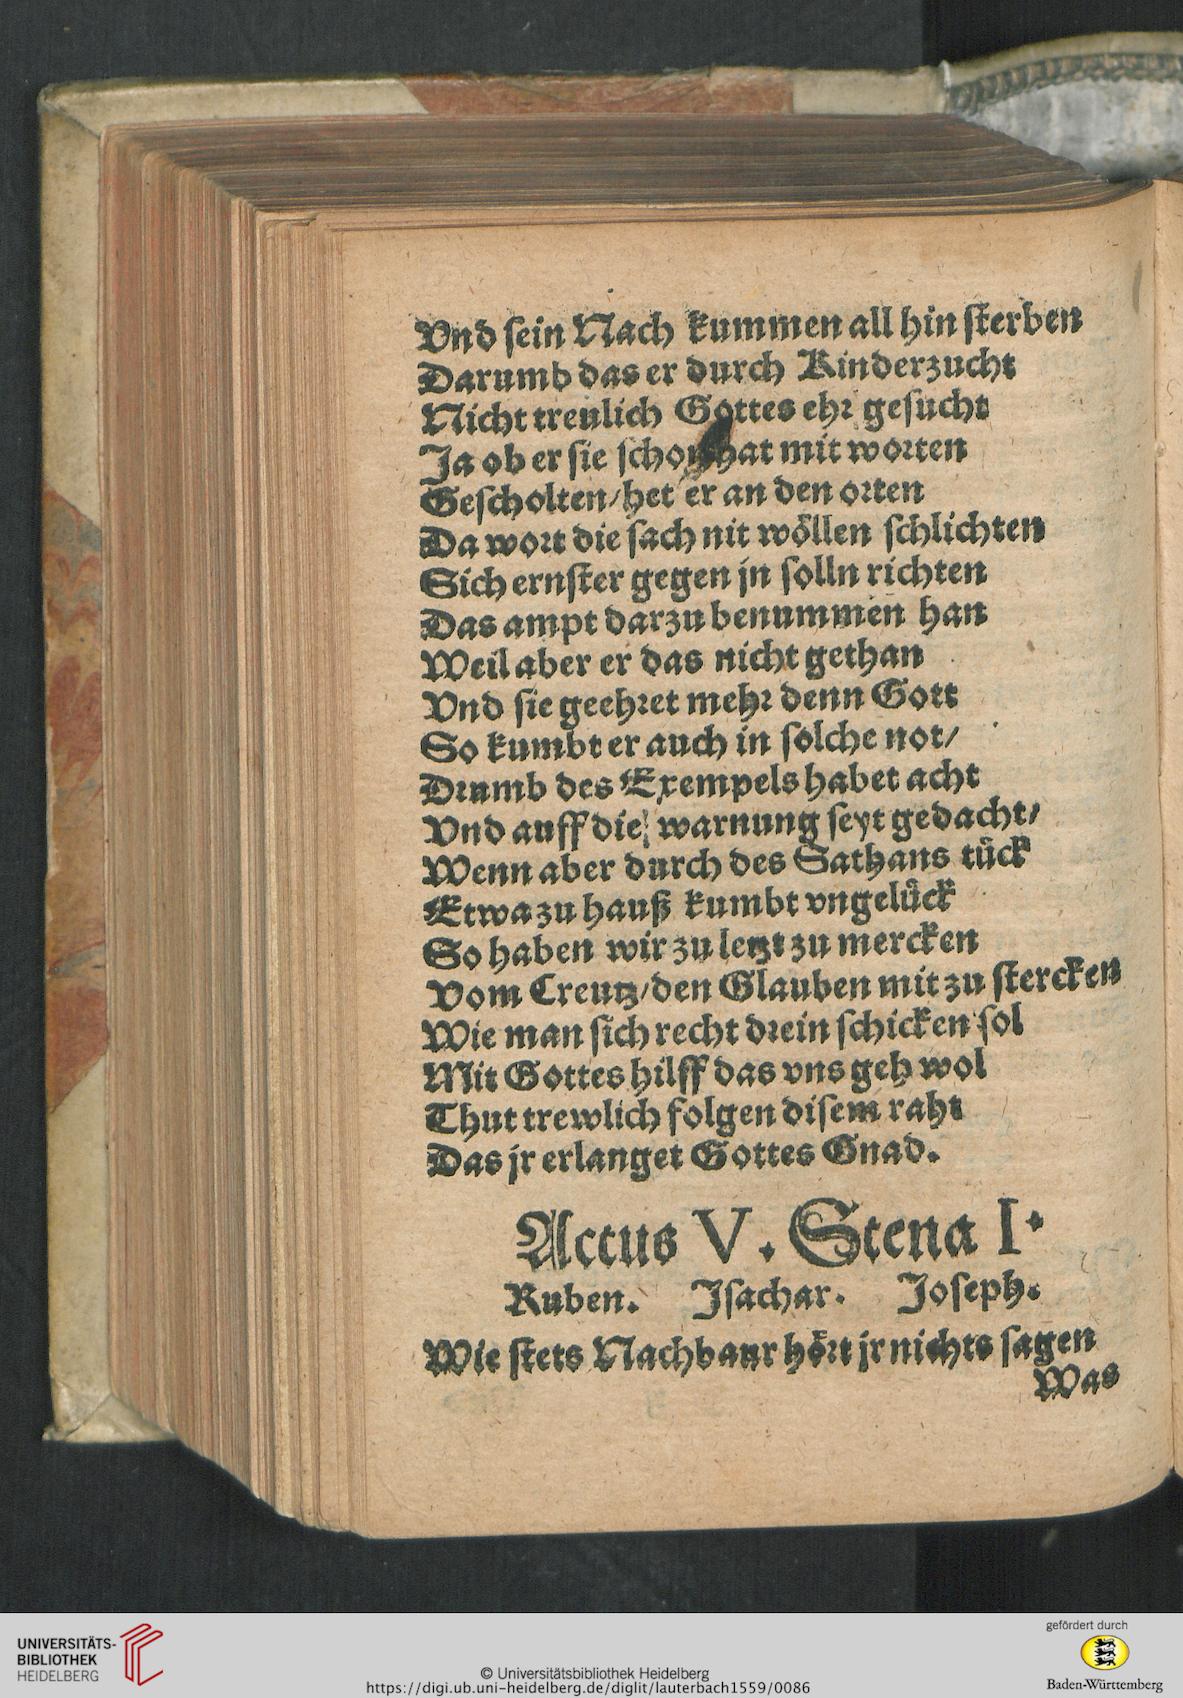 Vnd sein Nach kummen all hin sterben
Darumb das er durch Kinderzucht
Nicht treulich Gottes ehr gesucht
Ja ob er sie schon hat mit worten
Gescholten/het er an den orten
Da wort die sach nit wöllen schlichten
Sich ernster gegen jn solln richten
Das ampt darzu benummen han
Weil aber er das nicht gethan
Vnd sie geehret mehr denn Gott
So kumbt er auch in solche not/
Drumb des Exempels habet acht
Vnd auff die warnung seyt gedacht/
Wenn aber durch des Sathans tück
Etwa zu hauß kumbt vngelück
So haben wir zu letzt zu mercken
Vom Creutz/den Glauben mit zu stercken
Wie man sich recht drein schicken sol
Mit Gottes hilff das vns geh wol
Thut trewlich folgen disem raht
Das jr erlanget Gottes Gnad.
Actus V. Scena I.
Ruben. Isachar. Joseph.
Wie stets Nachbaur hört jr nichts sagen
Was
UNIVERSITÄTS-
BIBLIOTHEK
HEIDELBERG
© Universitätsbibliothek Heidelberg
https://digi.ub.uni-heidelberg.de/diglit/lauterbach1559/0086
gefördert durch
Baden-Württemberg